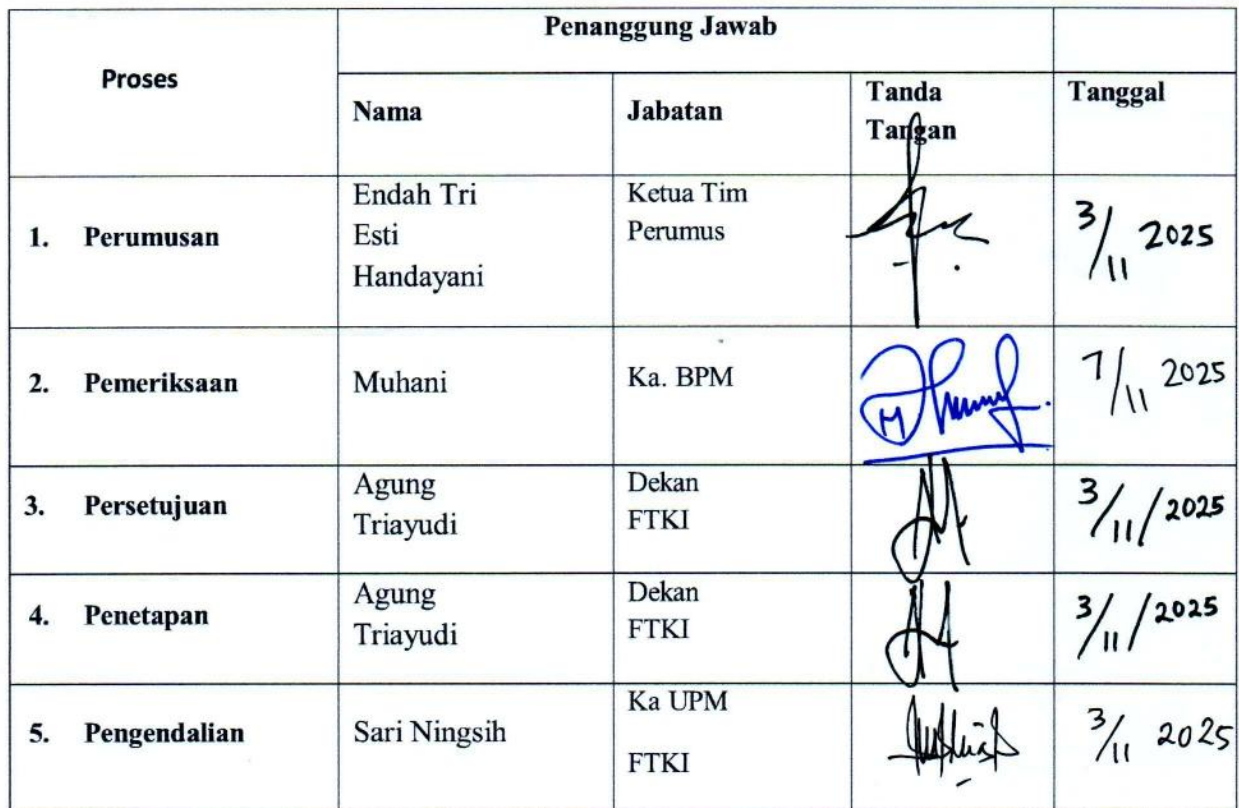 Penanggung Jawab
Proses
Nama Jabatan Tanda Tangan Tanggal
1. Perumusan
Endah Tri
Esti
Handayani
Ketua Tim
Perumus
3/11 2025
2. Pemeriksaan
Muhani
Ka. BPM
7/11 2025
3. Persetujuan
Agung
Triayudi
Dekan
FTKI
3/11/2025
4. Penetapan
Agung
Triayudi
Dekan
FTKI
3/11/2025
5. Pengendalian
Sari Ningsih
Ka UPM
FTKI
3/11 2025